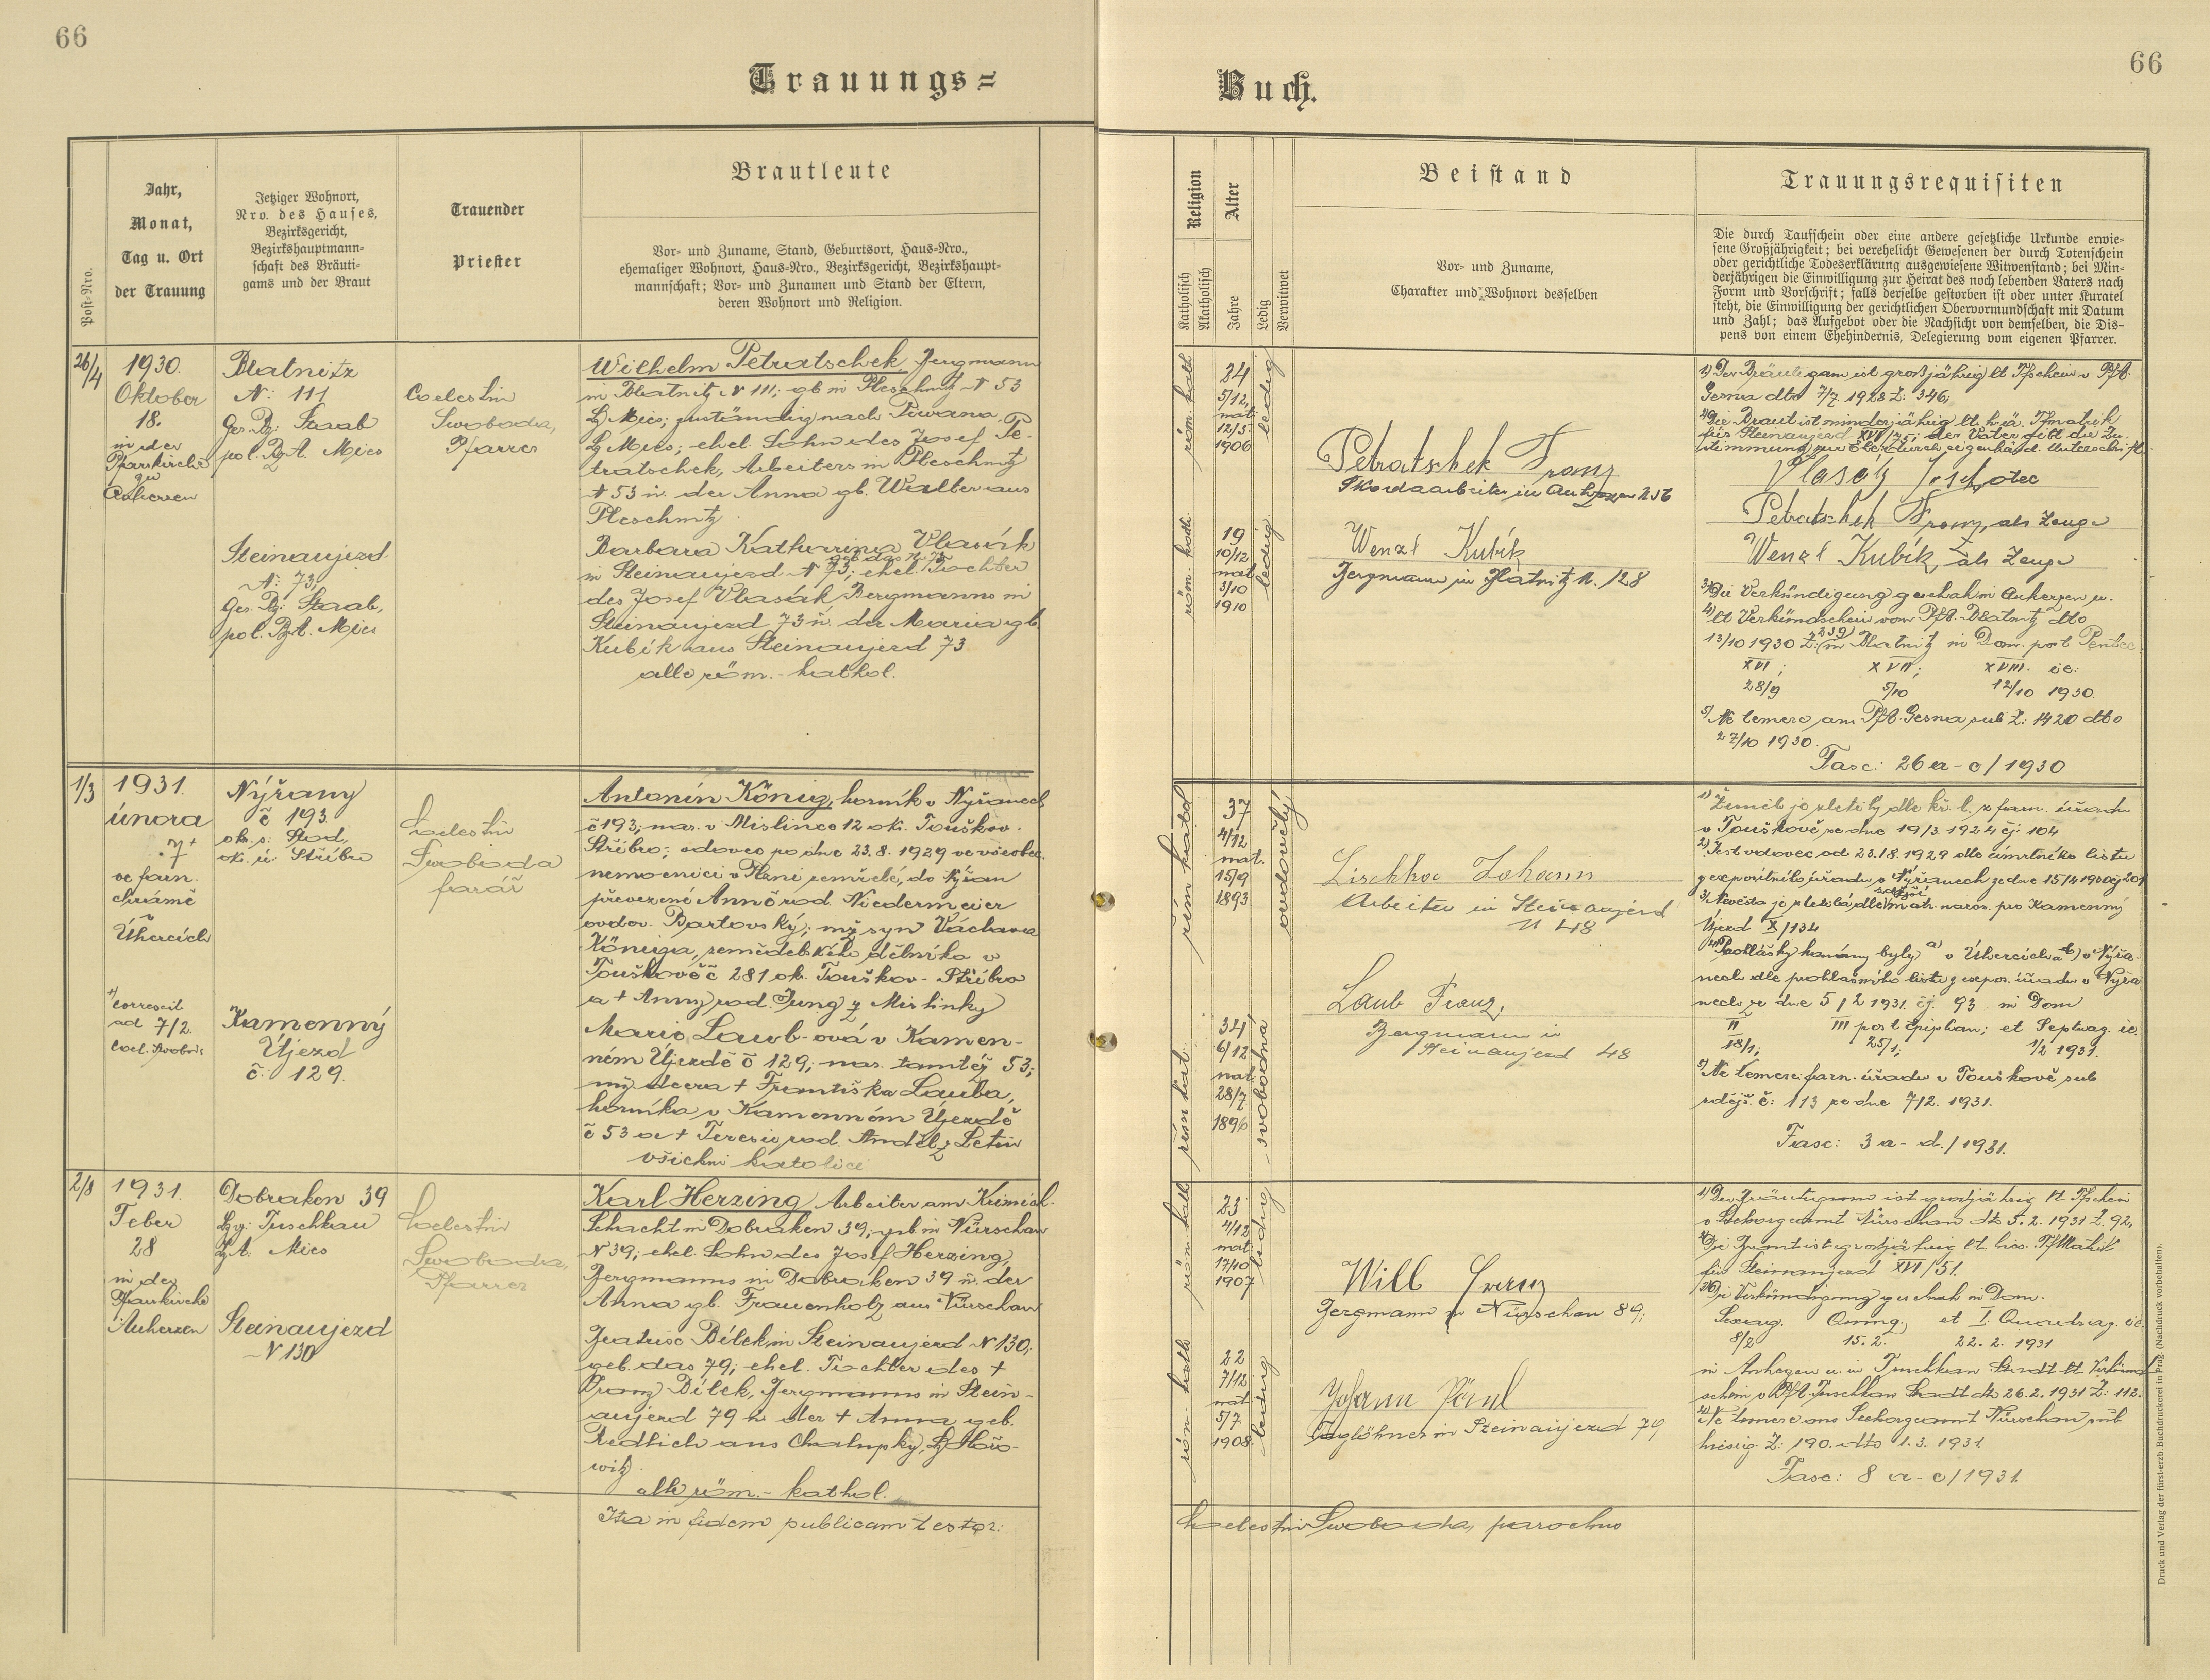 66
66
Trauungs=
Buch.
Post-Nro.
Jahr,
Monat,
Tag u. Ort
der Trauung
Jetziger Wohnort,
Nro. des Hauses,
Bezirksgericht,
Bezirkshauptmann-
schaft des Bräuti-
gams und der Braut
Trauender
Priester
Brautleute
Vor- und Zuname, Stand, Geburtsort, Haus-Nro.,
ehemaliger Wohnort, Haus-Nro., Bezirksgericht, Bezirkshaupt-
mannschaft; Vor- und Zunamen und Stand der Eltern,
deren Wohnort und Religion.
Religion
Katholisch
Akatholisch
Alter
Jahre
Ledig
Verwitwet
Beistand
Vor- und Zuname,
Charakter und Wohnort desselben
Trauungsrequisiten
Die durch Taufschein oder eine andere gesetzliche Urkunde erwie-
sene Großjährigkeit; bei verehelicht Gewesenen der durch Totenschein
oder gerichtliche Todeserklärung ausgewiesene Witwenstand; bei Min-
derjährigen die Einwilligung zur Heirat des noch lebenden Vaters nach
Form und Vorschrift; falls derselbe gestorben ist oder unter Kuratel
steht, die Einwilligung der gerichtlichen Obervormundschaft mit Datum
und Zahl; das Aufgebot oder die Nachsicht von demselben, die Dis-
pens von einem Ehehindernis, Delegierung vom eigenen Pfarrer.
26/4
1930.
Oktober
18.
in der
Pfarrkirche
zu
Auherzen
Blatnitz
N: 111
Ger. Bz: Staab
pol. Bz. A. Mies
Steinaujezd
N: 73,
Ger. Bz: Staab,
pol. Bz. A. Mies
Coelestin
Swoboda,
Pfarrer
Wilhelm Petratschek, Bergmann
in Blatnitz N 111; gb in Pleschnitz N 53
Bz Mies; zuständig nach Piwana
Bz Mies; ehel. Sohn des Josef Pe-
tratschek, Arbeiters in Pleschnitz
N 53 u. der Anna gb. Walber aus
Pleschnitz.
Barbara Katharina Vlasák
geb das N 73
in Steinaujezd N 73; ehel. Tochter
des Josef Vlasák Bergmanns in
Steinaujezd 73 u. der Maria gb.
Kubík aus Steinaujezd 73
alle röm.-kathol.
röm. kath
24
5/12
nat.
12/5
1906
ledig
röm. kath.
19
10/12
nat
3/10
1910
ledig
Petratschek Franz
Skodaarbeiter in Auherzen N 56
Wenzl Kubík
Bergmann in Blatnitz N. 128
1) Der Bräutigam ist großjährig lt Tfschein v PfA.
dto 7/7 1928 Z: 346;
2) Die Braut ist minderjährig lt. Tfmatrik
für Steinaujezd XVI/75; der Vater gibt die Zu-
stimmung zur Ehe durch eigenhänd. Unterschrift.
Vlasák Josef, otec
Petratschek Franz, als Zeuge
Wenzl Kubík, als Zeuge
3) Die Verkündigung geschah in Auherzen u.
4) lt Verkündschein vom PfA. Blatnitz dto
13/10 1930 Z: 239 in Blatnitz in Dom. post Pentec.
XVI; XVII; XVIII. ie:
28/9 5/10 12/10 1930.
5) Ne temere am PfA. sub Z: 1420 dto
27/10 1930.
Fasc: 26 a-c/1930
1/3
1931.
února
7+
ve farn.
chrámě
v
Úhercích
+) correxit
ad 7/2.
Coel. Swoboda
Nýřany
č 193
ok. s: Stod,
ok. ú. Stříbro
Kamenný
Újezd
č: 129.
Coelestin
Swoboda
farář
Antonín König, horník v Nýřanech
č 193; nar. v Mislince 12 ok. Touškov-
Stříbro; vdovec po dne 23.8.1929 ve všeobec.
nemocnici v Plzni zemřelé, do Nýřan
převezené Anně rod. Niedermeier
ovdov. Bartovský; mž syn Václava
Königa, zemědělského dělníka v
Touškově č 281 ok. Touškov-Stříbro
a + Anny rod. Jung z Mislinky
Marie Laub-ová v Kamen-
ném Újezdě č 129; nar. tamtéž 53;
mž. dcera + Františka Lauba,
horníka v Kamenném Újezdě
č 53 a + Terezie rod. Anděl z Letin
všichni katolíci
řím katol
37
4/12
nat.
15/9
1893
ovdovělý
řím kat.
34
6/12
nat
28/7
1896
svobodná
Lischka Johann
Arbeiter in Steinaujezd
N 48
Laub Franz,
Bergmann in
Steinaujezd 48
1) Ženich je zletilý dle kř. l. z farn. úřadu
v Touškově ze dne 19/3 1924 čj. 104
2) Jest vdovec od 23.8.1929 dle úmrtního listu
z expositního úřadu v Nýřanech ze dne 15/4 1930 čj 201
3) Nevěsta je zletilá dle zdejší matr. naroz. pro Kamenný
Újezd X/134
4) Prohlášky konány byly a) v Úhercích b) v Nýřa-
nech dle prohlašního listu z expos. úřadu v Nýřa
nech ze dne 5/2 1931. čj. 93 in Dom
II III post Epiphan; et Septuag. ie:
18/1; 25/1; 1/2 1931.
5) Ne temere: farn. úřadu v Touškově sub
zdejš. č: 113 ze dne 7/2. 1931.
Fasc: 3 a-d./1931.
2/8
1931.
Feber
28
in der
Pfarrkirche
Auherzen
Dobraken 39
Bz: Tuschkau
BzA. Mies
Steinaujezd
N 130
Coelestin
Swoboda,
Pfarrer
Karl Herzing, Arbeiter am Krimich-
Schacht in Dobraken 39; gb. in Nürschan
N 39; ehel. Sohn des Josef Herzing,
Bergmanns in Dobraken 39 u. der
Anna gb. Frauenholz aus Nürschan
Beatrice Bílek in Steinaujezd N 130;
geb. das 79; ehel. Tochter des +
Franz Bílek, Bergmanns in Stein-
aujezd 79 u. der + Anna geb.
Redlich aus Chalupky, Bz Hořo-
witz.
alle röm.-kathol.
röm kath
23
4/12
nat.
17/10
1907
ledig
röm. kath
22
7/12
nat.
5/7
1908.
ledig
Will Franz
Bergmann in Nürschan 89;
Johann
Taglöhner in Steinaujezd 74
1) Der Bräutigam ist grossjährig lt. Tfschein
v Seelsorgeamt Nürschan dto 5.2.1931 Z. 92,
2) Die Braut ist grossjährig lt. hies. TfMatrik
für Steinaujezd XVI/51.
3) Die Verkündigung geschah in Dom.
Sexag. Quinq. et I. Quadrag. ie.
8/2 15.2. 22.2. 1931
in Auherzen u. in Tuschkau Stadt lt. Verkünd
schein v PfA. Tuschkau Stadt dto 26.2.1931 Z: 112.
4) Ne temere ans Seelsorgeamt Nürschan sub
hiesig. Z: 190. dto 1.3.1931
Fasc: 8 a-c/1931.
Ita in fidem publicam testor:
Coelestin Swoboda, parochus
Druck und Verlag der fürst-erzb. Buchdruckerei in Prag. (Nachdruck vorbehalten).